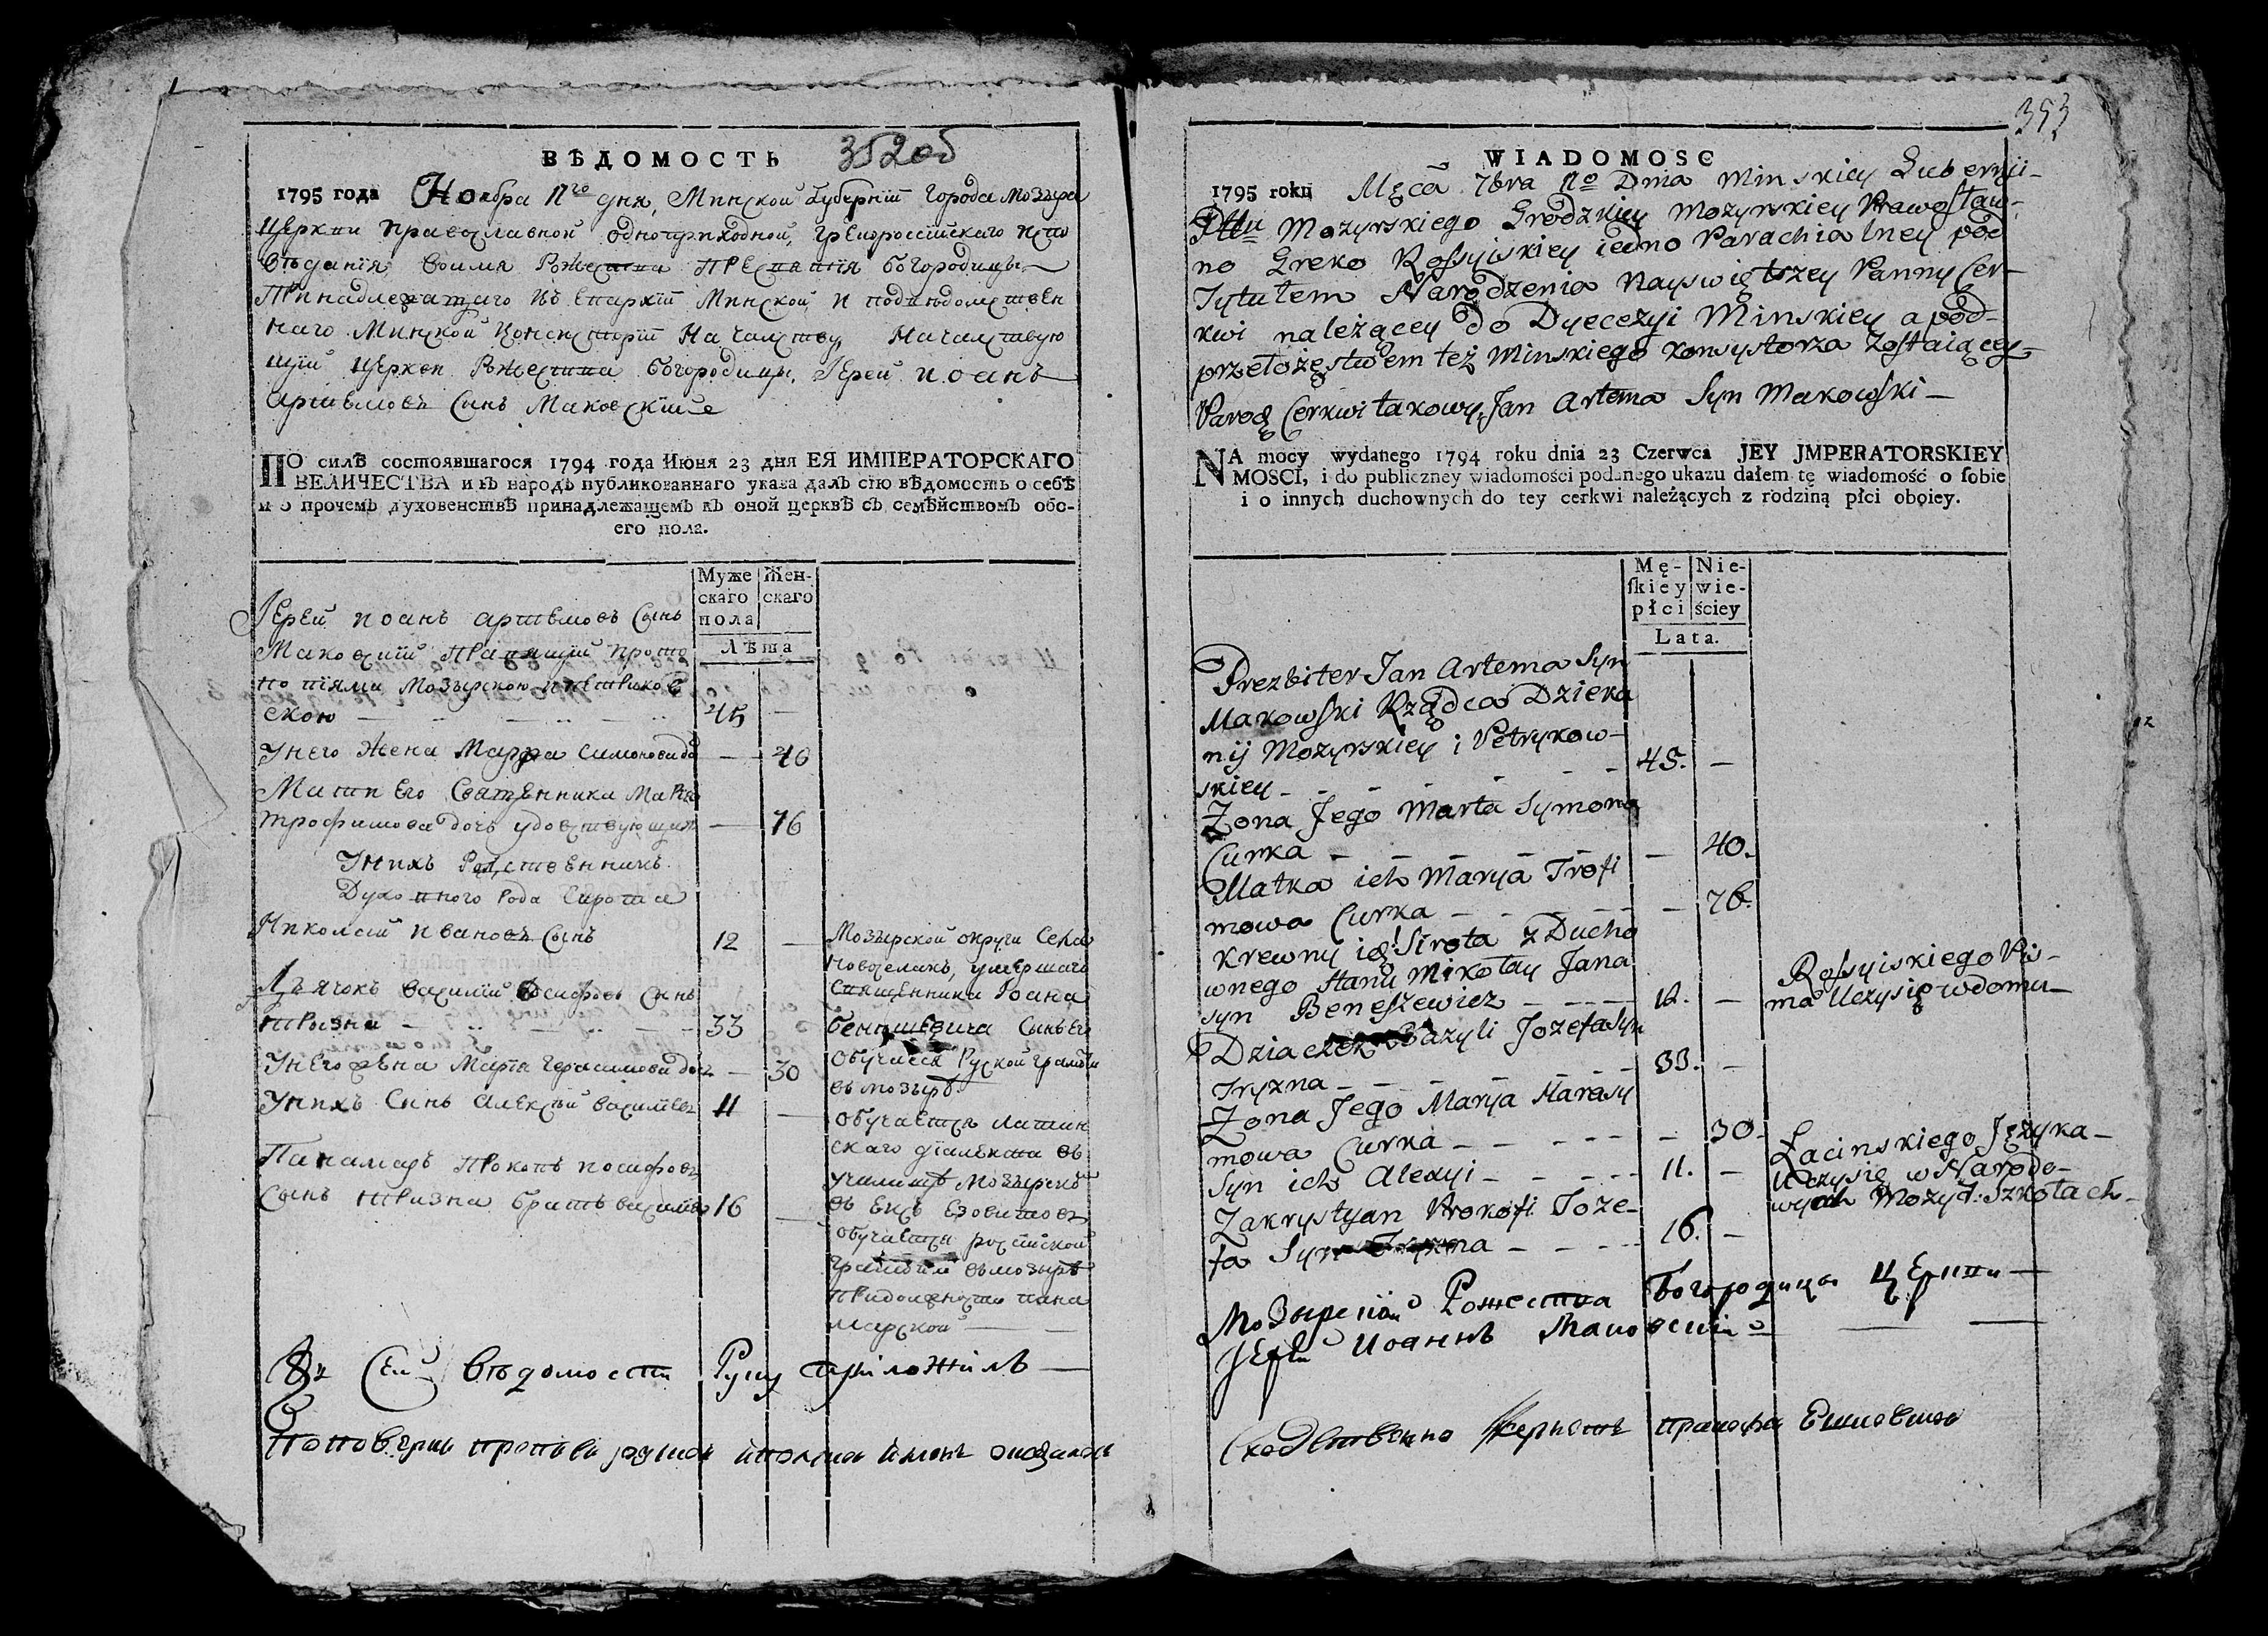 ВѢДОМОСТЬ 352об
1795 года Ноября 11го дня, Минской Губернїи города Мозыря
Церкви православной одноприходной, грекороссїйскаго испо
вѣданїя, воимя Рожества Пресвятїя Богородицы
Принадлежащаго къ Епархїи Минской, и подвѣдомствен
наго Минской Консисторїи Началству, Началствую
щїй церкви Рожества Богородицы, Іерей иоанъ
Артемовъ Сынъ Маковскїй
ПО силѣ состоявшагося 1794 года Июня 23 дня ЕЯ ИМПЕРАТОРСКАГО
ВЕЛИЧЕСТВА и въ народъ публикованнаго указа далъ сїю вѣдомость о себѣ
и о прочемъ духовенствѣ принадлежащемъ къ оной церквѣ съ семѣйствомъ обо-
его пола.
Муже Жен-
скаго скаго
пола
Лѣта
Іерей иоанъ артемовъ Сынъ
Маковскїй Правящїй прото
по пїями Мозырскою и петриков
скою 45 —
Унего Жена Марѳа Симонова до — 40
Мати Его Священника Марія
трофимова дочь удовствующая — 76
Унихъ Родственникъ
Духовного Рода Сирота
Николай Ивановъ Сынъ 12 —
Мозырской округи Села
Новоселакъ, умершаго
Священника Іоана
Бенишевича Сынъ Его
обучаеся Руской грамоти
въ мозырѣ
Дьячокъ Василїй Иосифовъ Сынъ
тризна 33
Унего жена Марія Герасимова доч — 30
Унихъ Сынъ Алексѣй Василїевъ 11 —
обучается латин
скаго дїалекта въ
училищѣ Мозырскѣ
въ Екзъ Езовитовъ
Панамарь Прокопъ иосифовъ
Сынъ тризна братъ василїевъ 16 —
обучаетця россїйской
грамоти въмозырѣ
придолжности пана
марской
Къ Сей вѣдомости Руку приложилъ

353
WIADOMOSC
1795 roku Męca 7bra 11o Dnia Minskiey Gubernji
Pttu Mozyrskiego Grodzkiey Mozyrskiey Prawosław-
no Greko Rossyiskiey iedno Parachialney pod
Tytułem Narodzenia Nayswiętszey Panny Cer-
kwi należącey do Dyecezyi Minskiey a pod-
przełożęstwem też Minskiego Konsystorza Zostaiącey
Paroch Cerkwi takowy, Jan Artema Syn Makowski —
NA mocy wydanego 1794 roku dnia 23 Czerwca JEY JMPERATORSKIEY
MOSCI, i do publiczney wiadomości podanego ukazu dałem tę wiadomość o sobie
i o innych duchownych do tey cerkwi należących z rodziną płci oboiey.
Mę- Nie-
skiey wie-
płci ściey
Lata.
Prezbiter Jan Artema Syn
Makowski Rządca Dzieka
nij Mozyrskiey i Petrykow-
skiey 45. —
Zona Jego Marta Symona
Curka — 40.
Matka ich Marya Trofi
mowa Curka — 76.
Krewny ich Sirota z Ducho
wnego Stanu Mikołay Jana
syn Beneszewicz 12. —
Rossyiskiego Pis-
ma Uczy się w domu
Dziaczek Bazyli Jozefa Syn
Tryzna 33. —
Zona Jego Marya Harasy
mowa Curka — 30.
Syn ich Alexyi 11. —
Łacinskiego Języka
Uczy się w Narodo-
wych Mozyr: Szkołach
Zakrystyan Prokofi Joze-
fa Syn Tryzna 16. —
Мозырскїй Рожества Богородицы Церкви
Іерей Иоаннъ Маковскїй